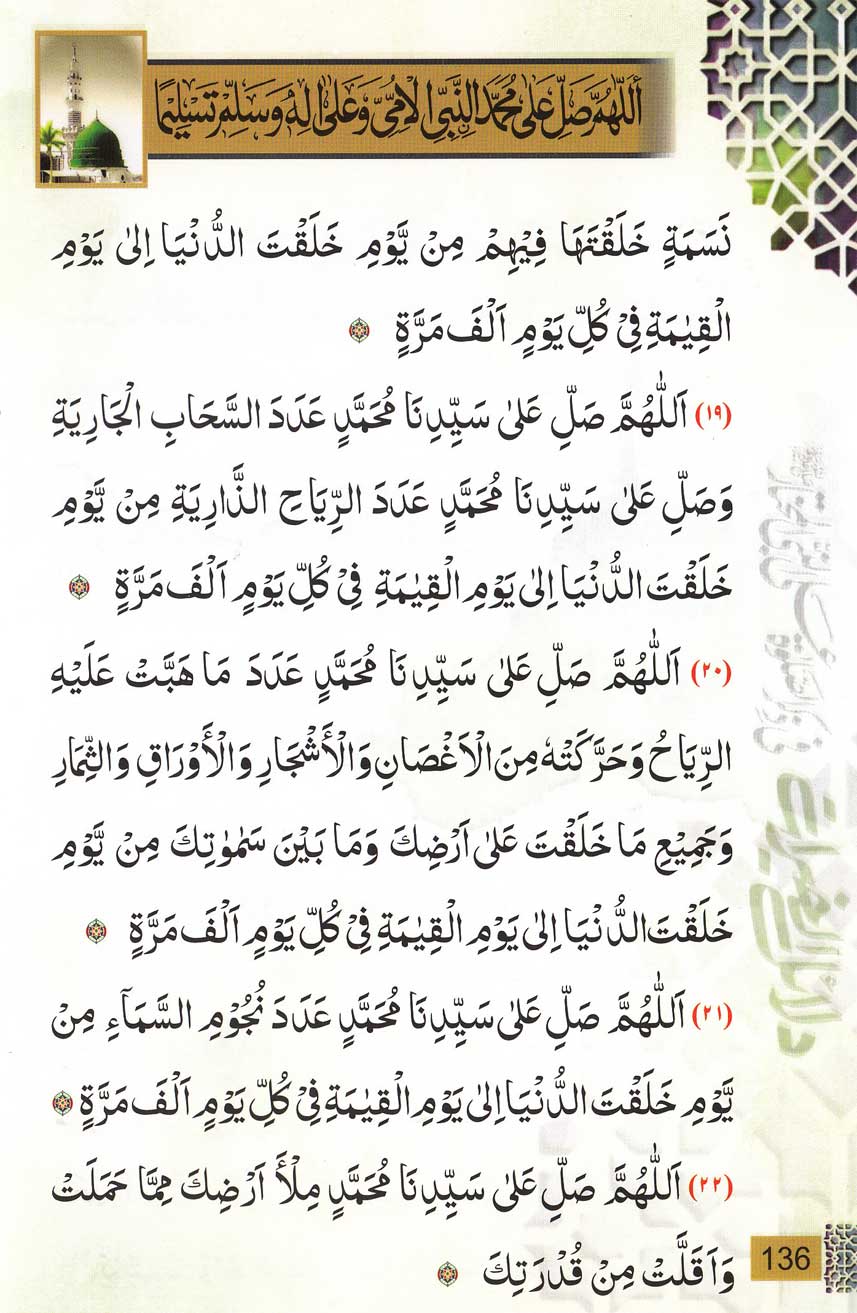 اَللّٰهُمَّ صَلِّ عَلٰى مُحَمَّدِ النَّبِيِّ الْاُمِّيِّ وَعَلٰى اٰلِهٖ وَسَلِّمْ تَسْلِيْمًا
نَسَمَةٍ خَلَقْتَهَا فِيْهِمْ مِنْ يَّوْمِ خَلَقْتَ الدُّنْيَا اِلٰى يَوْمِ
الْقِيٰمَةِ فِيْ كُلِّ يَوْمٍ اَلْفَ مَرَّةٍ
(١٩) اَللّٰهُمَّ صَلِّ عَلٰى سَيِّدِنَا مُحَمَّدٍ عَدَدَ السَّحَابِ الْجَارِيَةِ
وَصَلِّ عَلٰى سَيِّدِنَا مُحَمَّدٍ عَدَدَ الرِّيَاحِ الذَّارِيَةِ مِنْ يَّوْمِ
خَلَقْتَ الدُّنْيَا اِلٰى يَوْمِ الْقِيٰمَةِ فِيْ كُلِّ يَوْمٍ اَلْفَ مَرَّةٍ
(٢٠) اَللّٰهُمَّ صَلِّ عَلٰى سَيِّدِنَا مُحَمَّدٍ عَدَدَ مَا هَبَّتْ عَلَيْهِ
الرِّيَاحُ وَحَرَّكَتْهُ مِنَ الْاَغْصَانِ وَالْأَشْجَارِ وَالْأَوْرَاقِ وَالثِّمَارِ
وَجَمِيْعِ مَا خَلَقْتَ عَلٰى اَرْضِكَ وَمَا بَيْنَ سَمٰوٰتِكَ مِنْ يَّوْمِ
خَلَقْتَ الدُّنْيَا اِلٰى يَوْمِ الْقِيٰمَةِ فِيْ كُلِّ يَوْمٍ اَلْفَ مَرَّةٍ
(٢١) اَللّٰهُمَّ صَلِّ عَلٰى سَيِّدِنَا مُحَمَّدٍ عَدَدَ نُجُوْمِ السَّمَآءِ مِنْ
يَّوْمِ خَلَقْتَ الدُّنْيَا اِلٰى يَوْمِ الْقِيٰمَةِ فِيْ كُلِّ يَوْمٍ اَلْفَ مَرَّةٍ
(٢٢) اَللّٰهُمَّ صَلِّ عَلٰى سَيِّدِنَا مُحَمَّدٍ مِلْأَ اَرْضِكَ مِمَّا حَمَلَتْ
وَاَقَلَّتْ مِنْ قُدْرَتِكَ
136
دلائل الخیرات